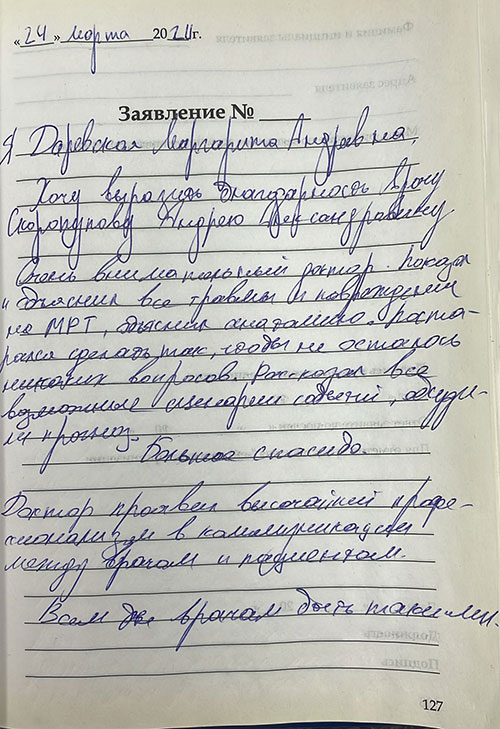 «24» марта 2021г.
Заявление №
Я Даревская Маргарита Андреевна,
Хочу выразить благодарность врачу
Скоропупову Андрею Александровичу
Очень внимательный доктор. Показал
и объяснил все травмы и повреждения
на МРТ, объяснил анатомию. Поста-
рался сделать так, чтобы не осталось
никаких вопросов. Рассказал все
возможные сценарии событий, обсуди-
ли прогноз.
Большое спасибо
Доктор проявил высочайший профе-
сионализм в коммуникации
между врачом и пациентом.
Всем бы врачам быть такими.
127